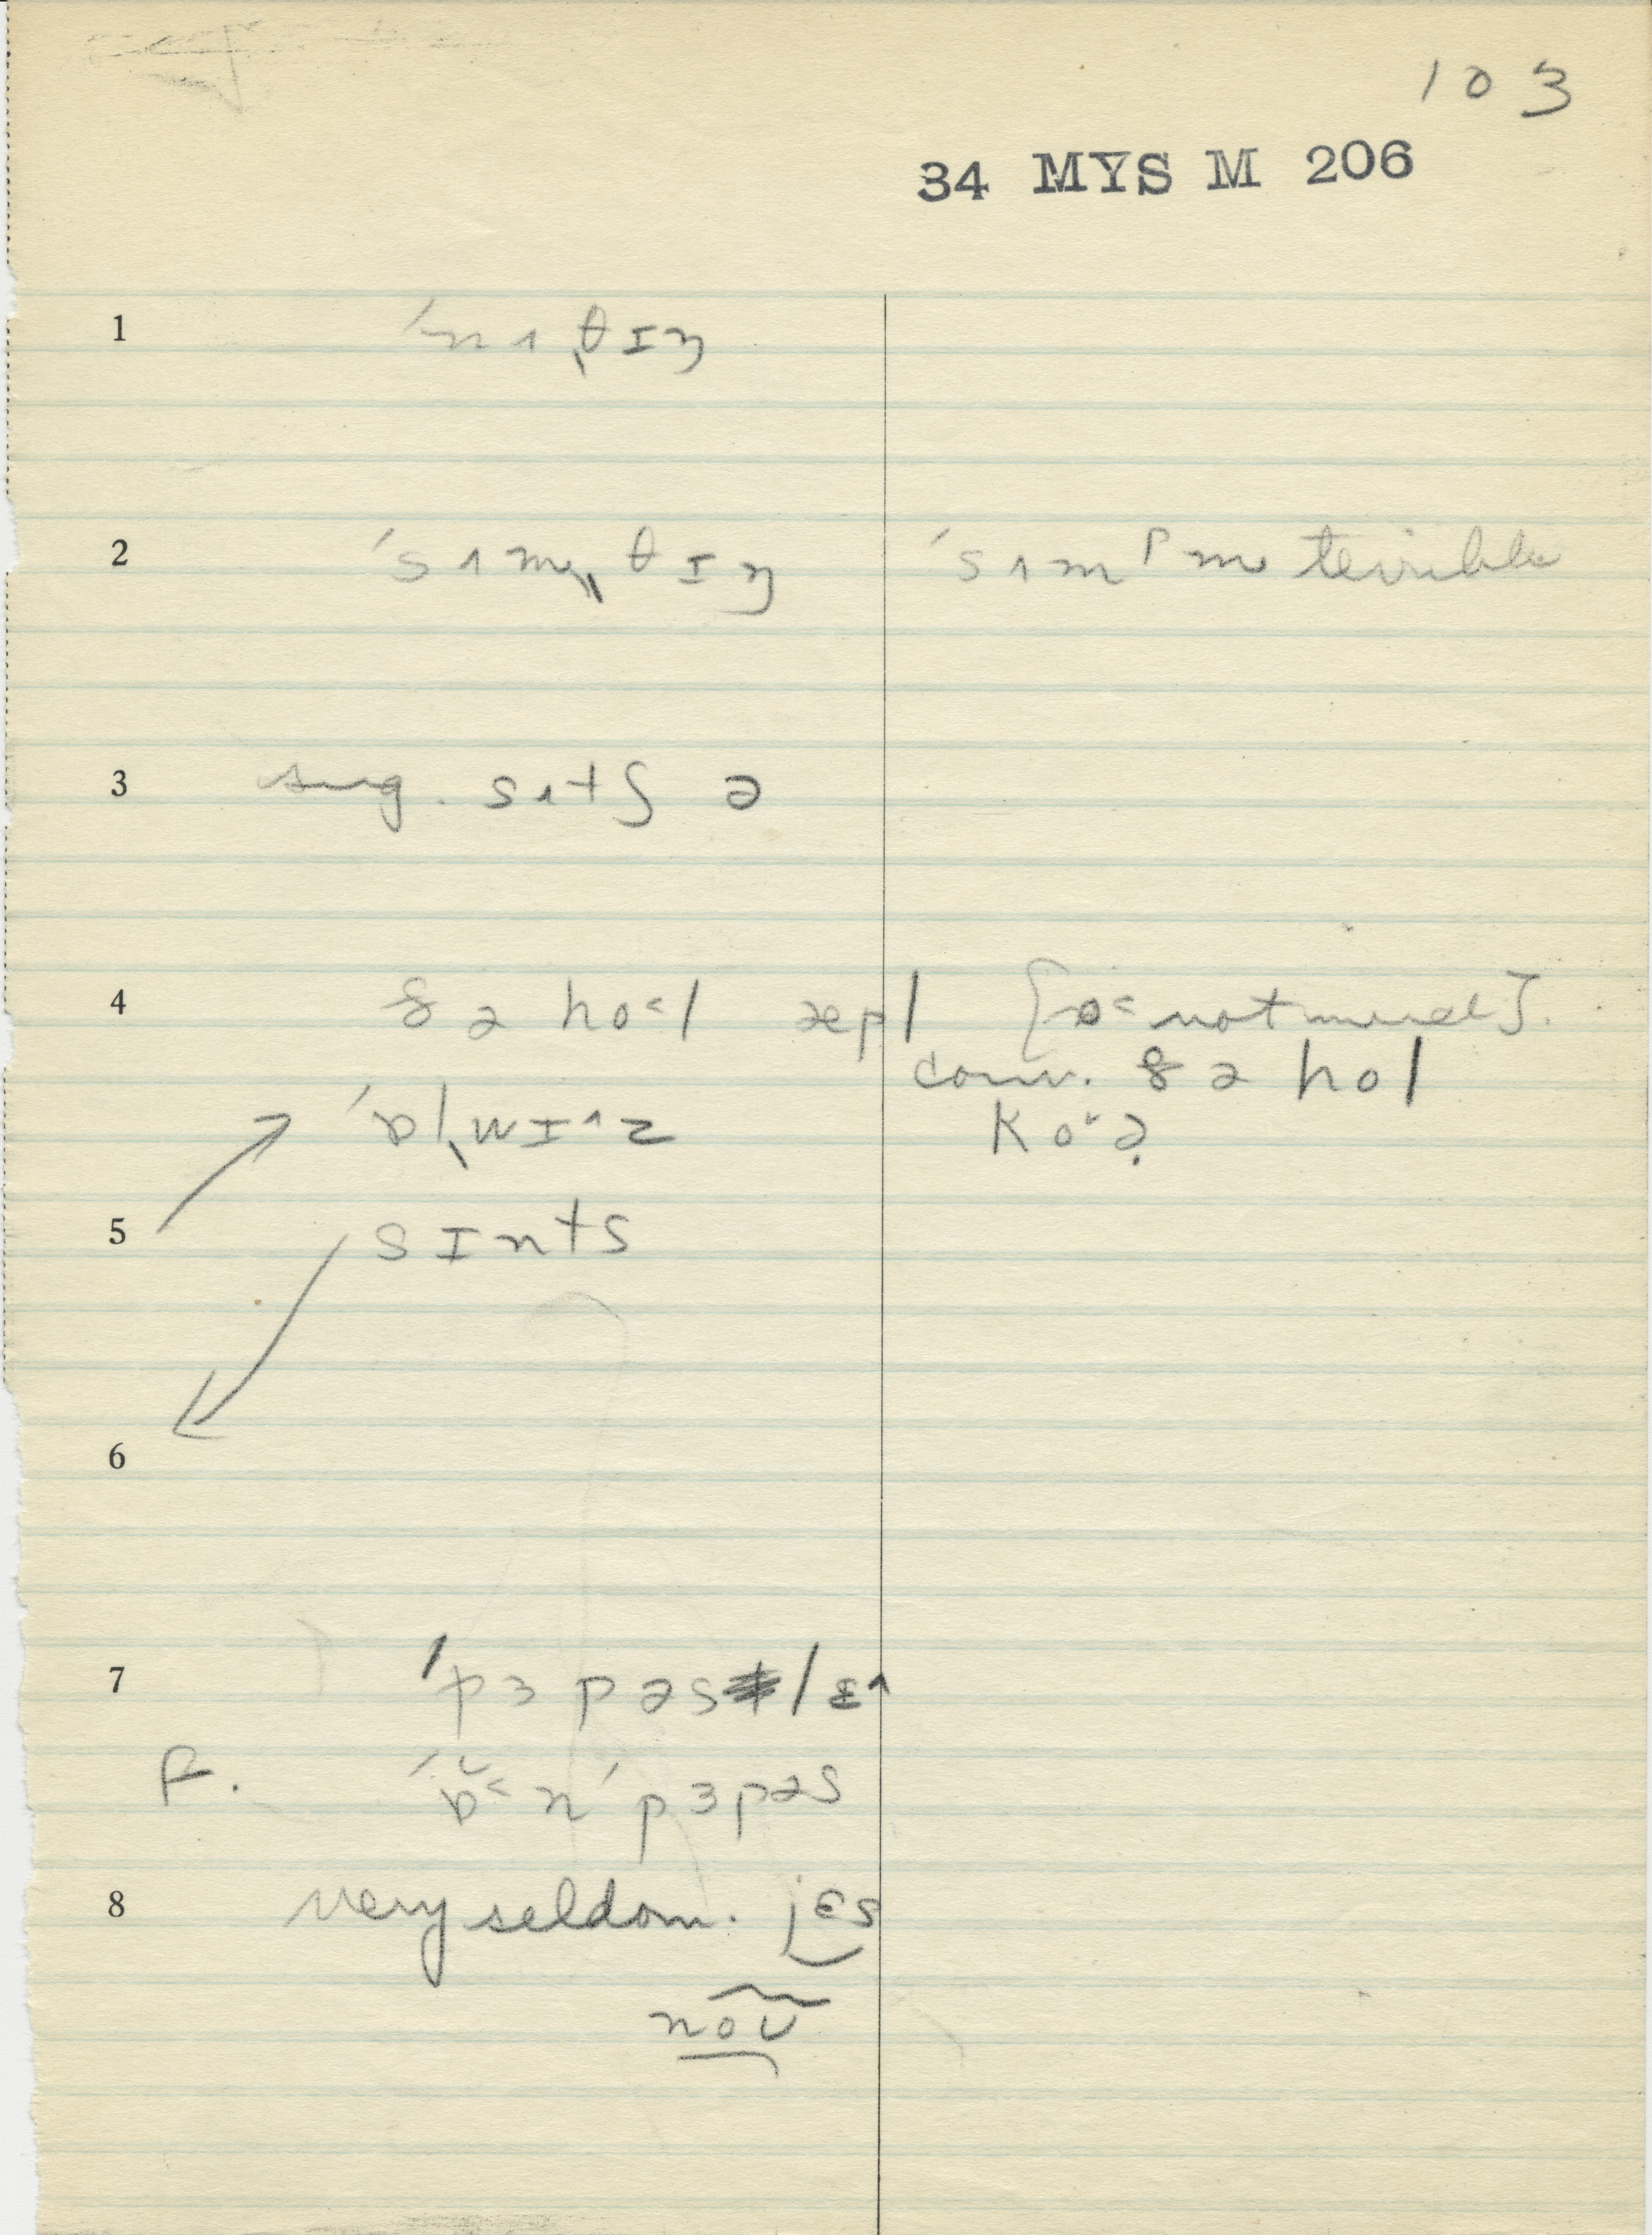 103
34 MYS M 206
1 ˈnʌˌθɪŋ
2 ˈsʌmˌθɪŋ ˈsʌmᵖm terrible
3 sug. sʌtʃ ə
4 ðə ho˂l æpl
conv. ðə hol
ˈɒlˌwɪ^z
5 sɪnts
6
7 ˈpɜpəs/ɛ^
F. ˈɒ̆˂n ˈpɜpəs
8 very seldom. jɛs
noʊ